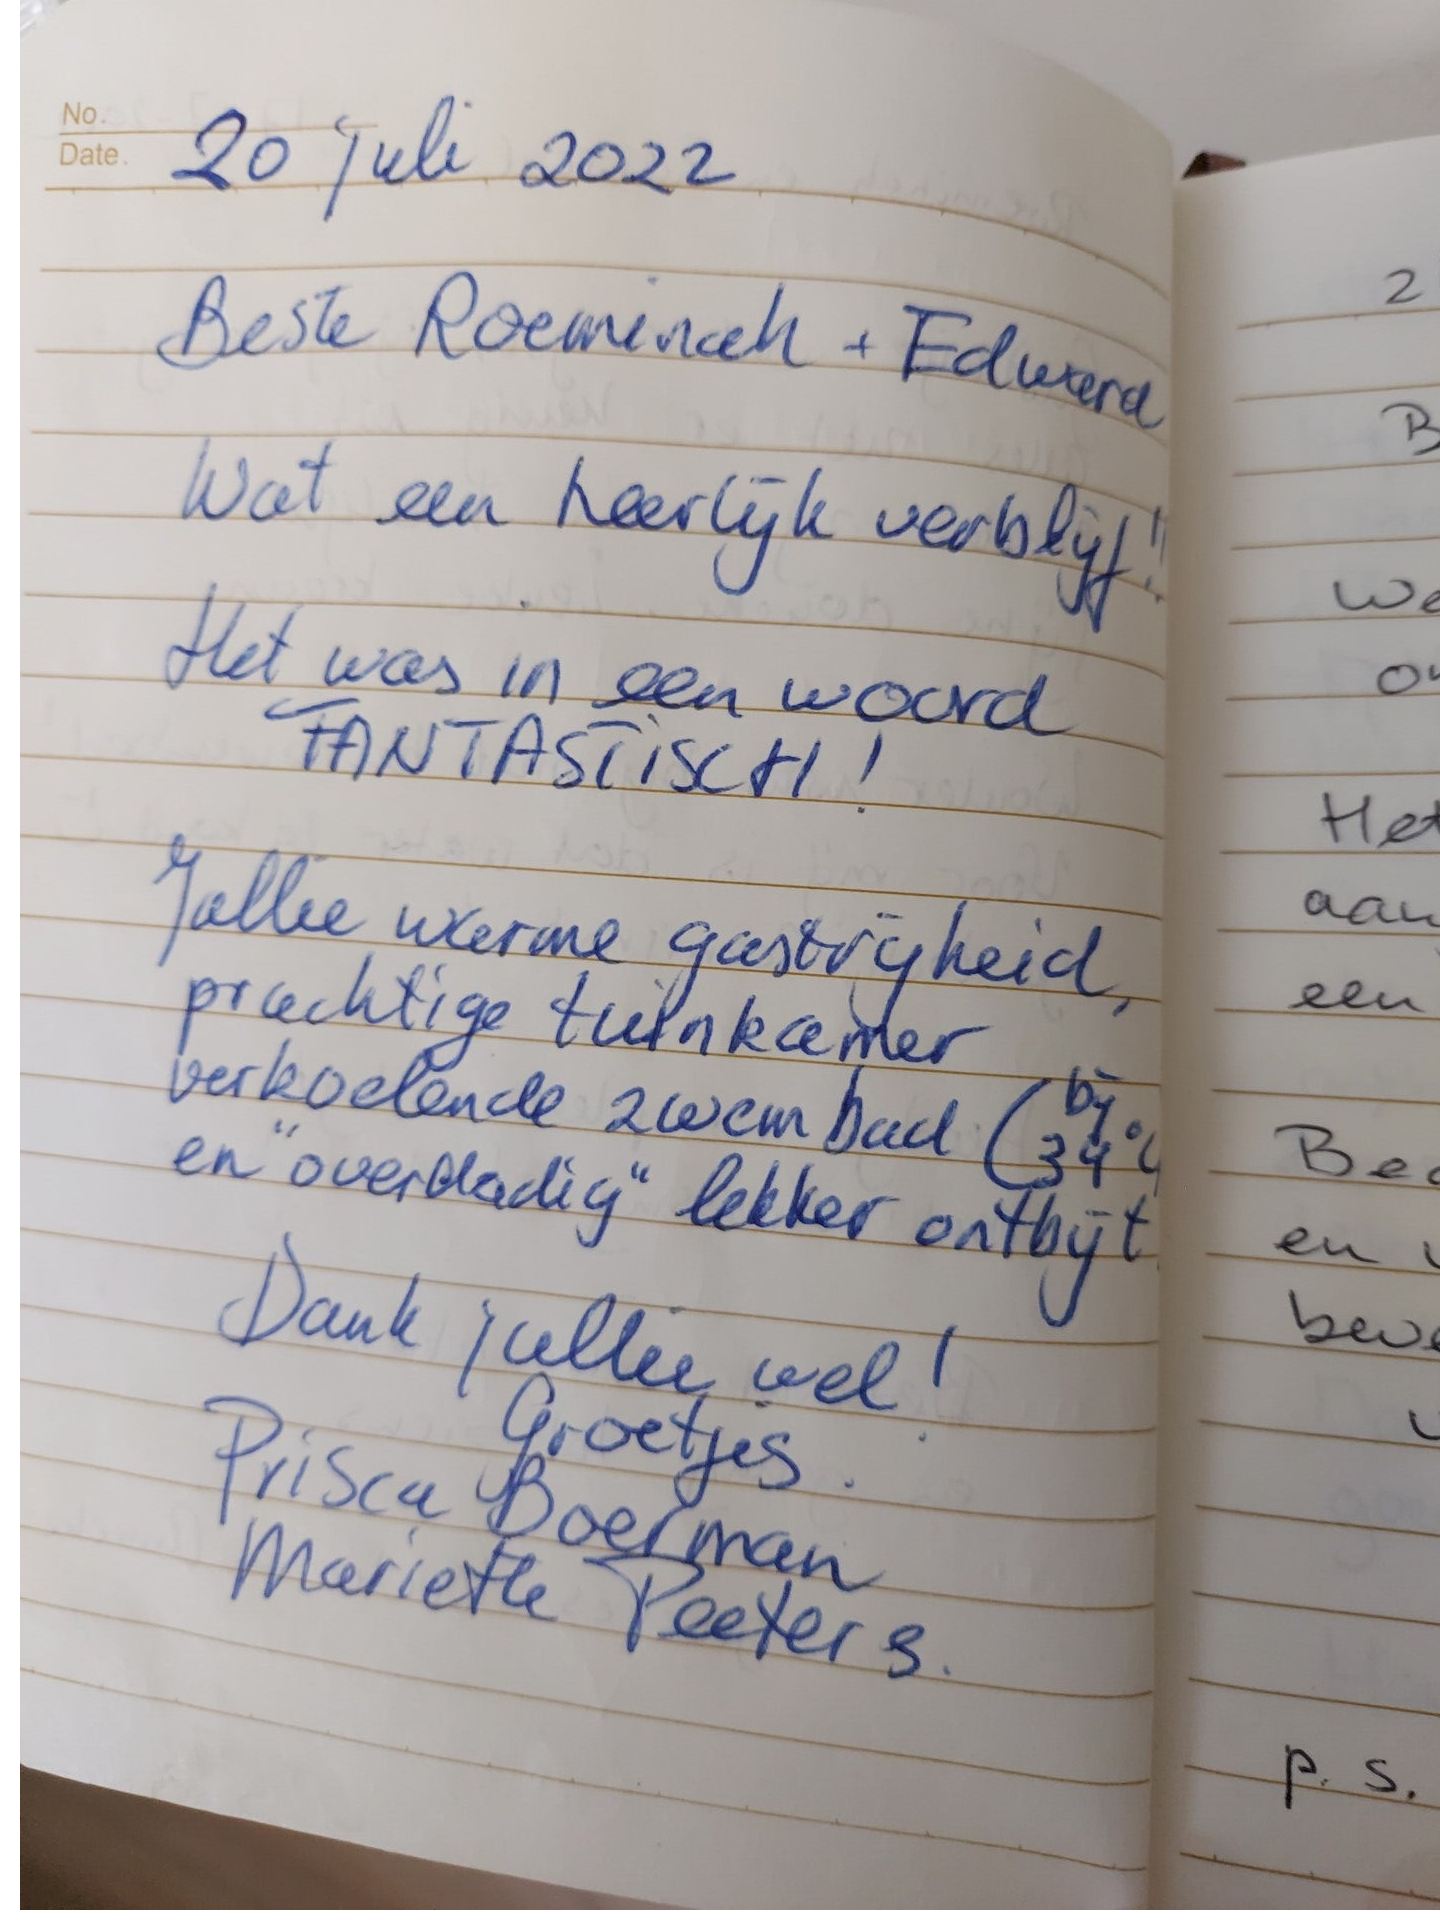 No.
Date.
20 juli 2022
Beste Roeminah + Edward
Wat een heerlijk verblijf!!
Het was in een woord
FANTASTISCH!
Jullie warme gastvrijheid,
prachtige tuinkamer
verkoelende zwembad (bij
34°C
en "overdadig" lekker ontbijt
Dank jullie wel!
Groetjes.
Prisca Boerman
Mariette Peeters.
2
B
We
Het
aan
een
Bed
en
p. s.